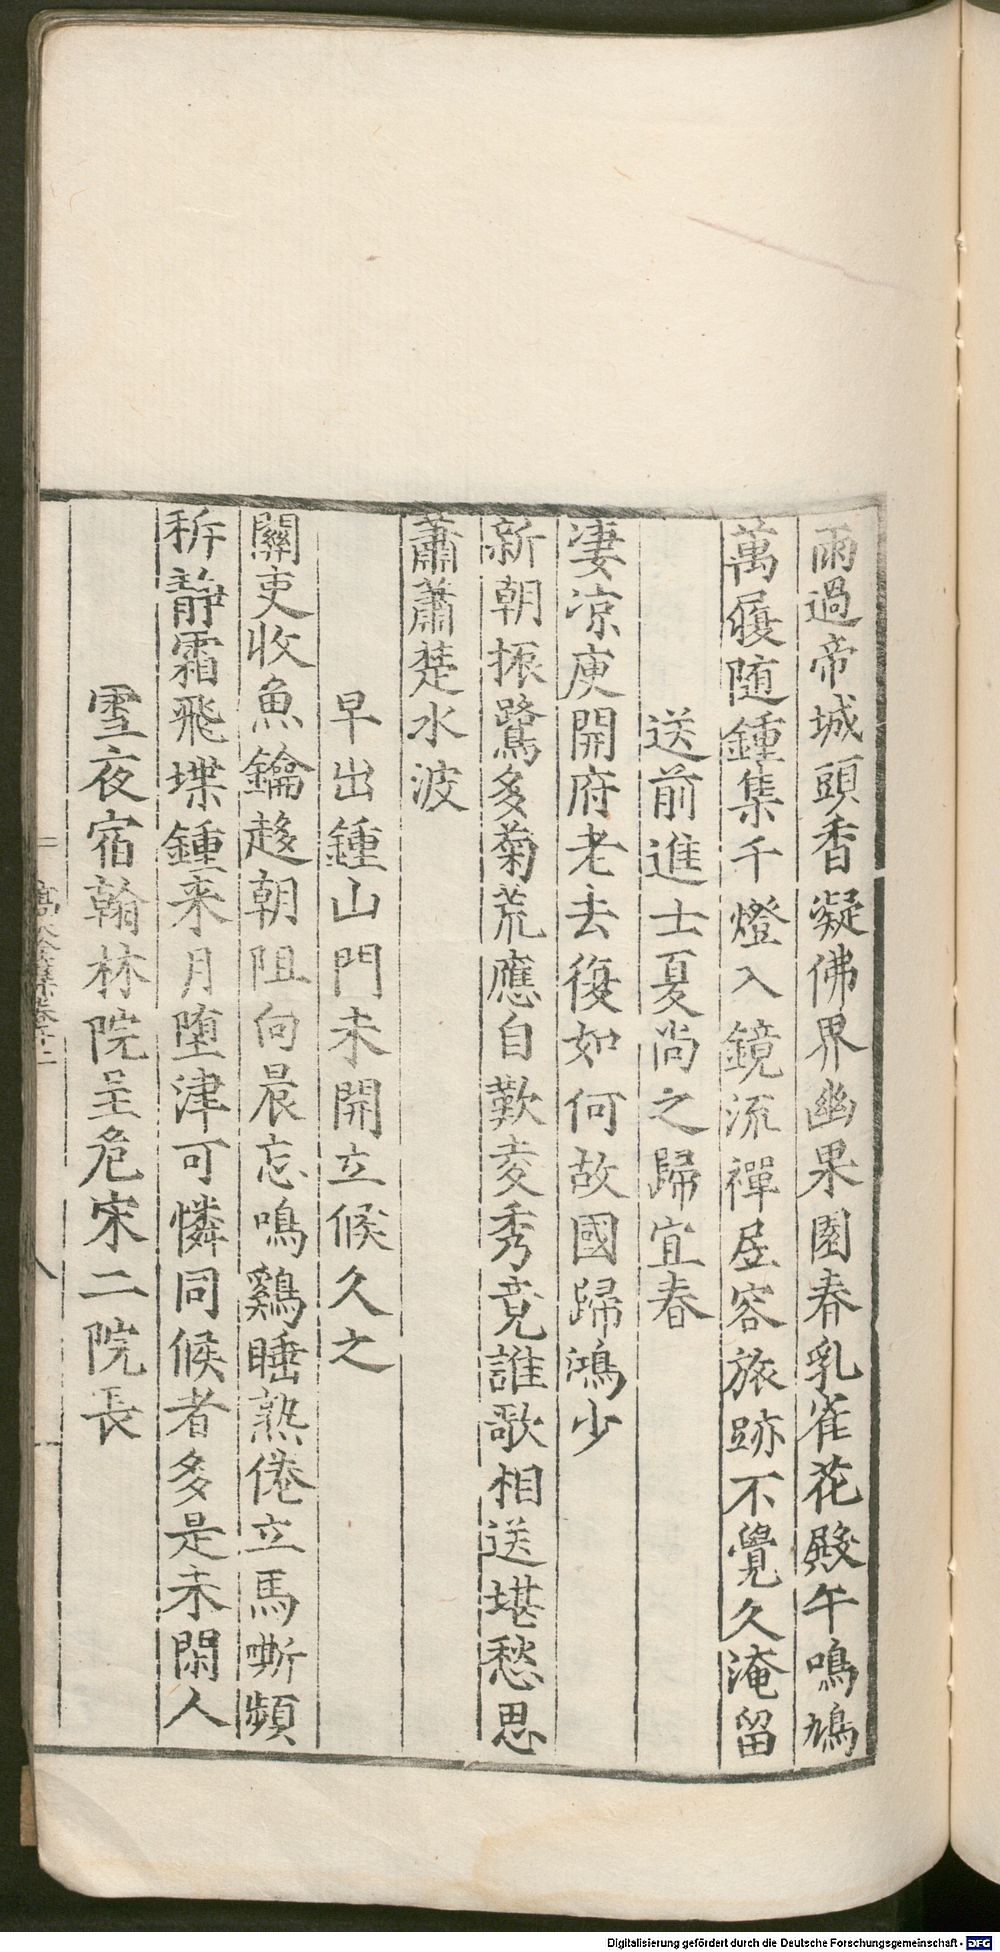 雨過帝城頭香凝佛界幽果園春乳雀花殿午鳴鳩
萬履隨鍾集千燈入鏡流禪居容旅跡不覺久淹留
送前進士夏尚之歸宜春
淒凉庾開府老去復如何故國歸鴻少
新朝振鷺多菊荒應自歎麦秀竟誰歌相送堪愁思
蕭蕭楚水波
早出鍾山門未開立候久之
關吏收魚鑰趍朝阻向晨忘鳴鷄睡熟倦立馬嘶頻
柝靜霜飛堞鍾来月墮津可憐同候者多是未閑人
雪夜宿翰林院呈危宋二院長